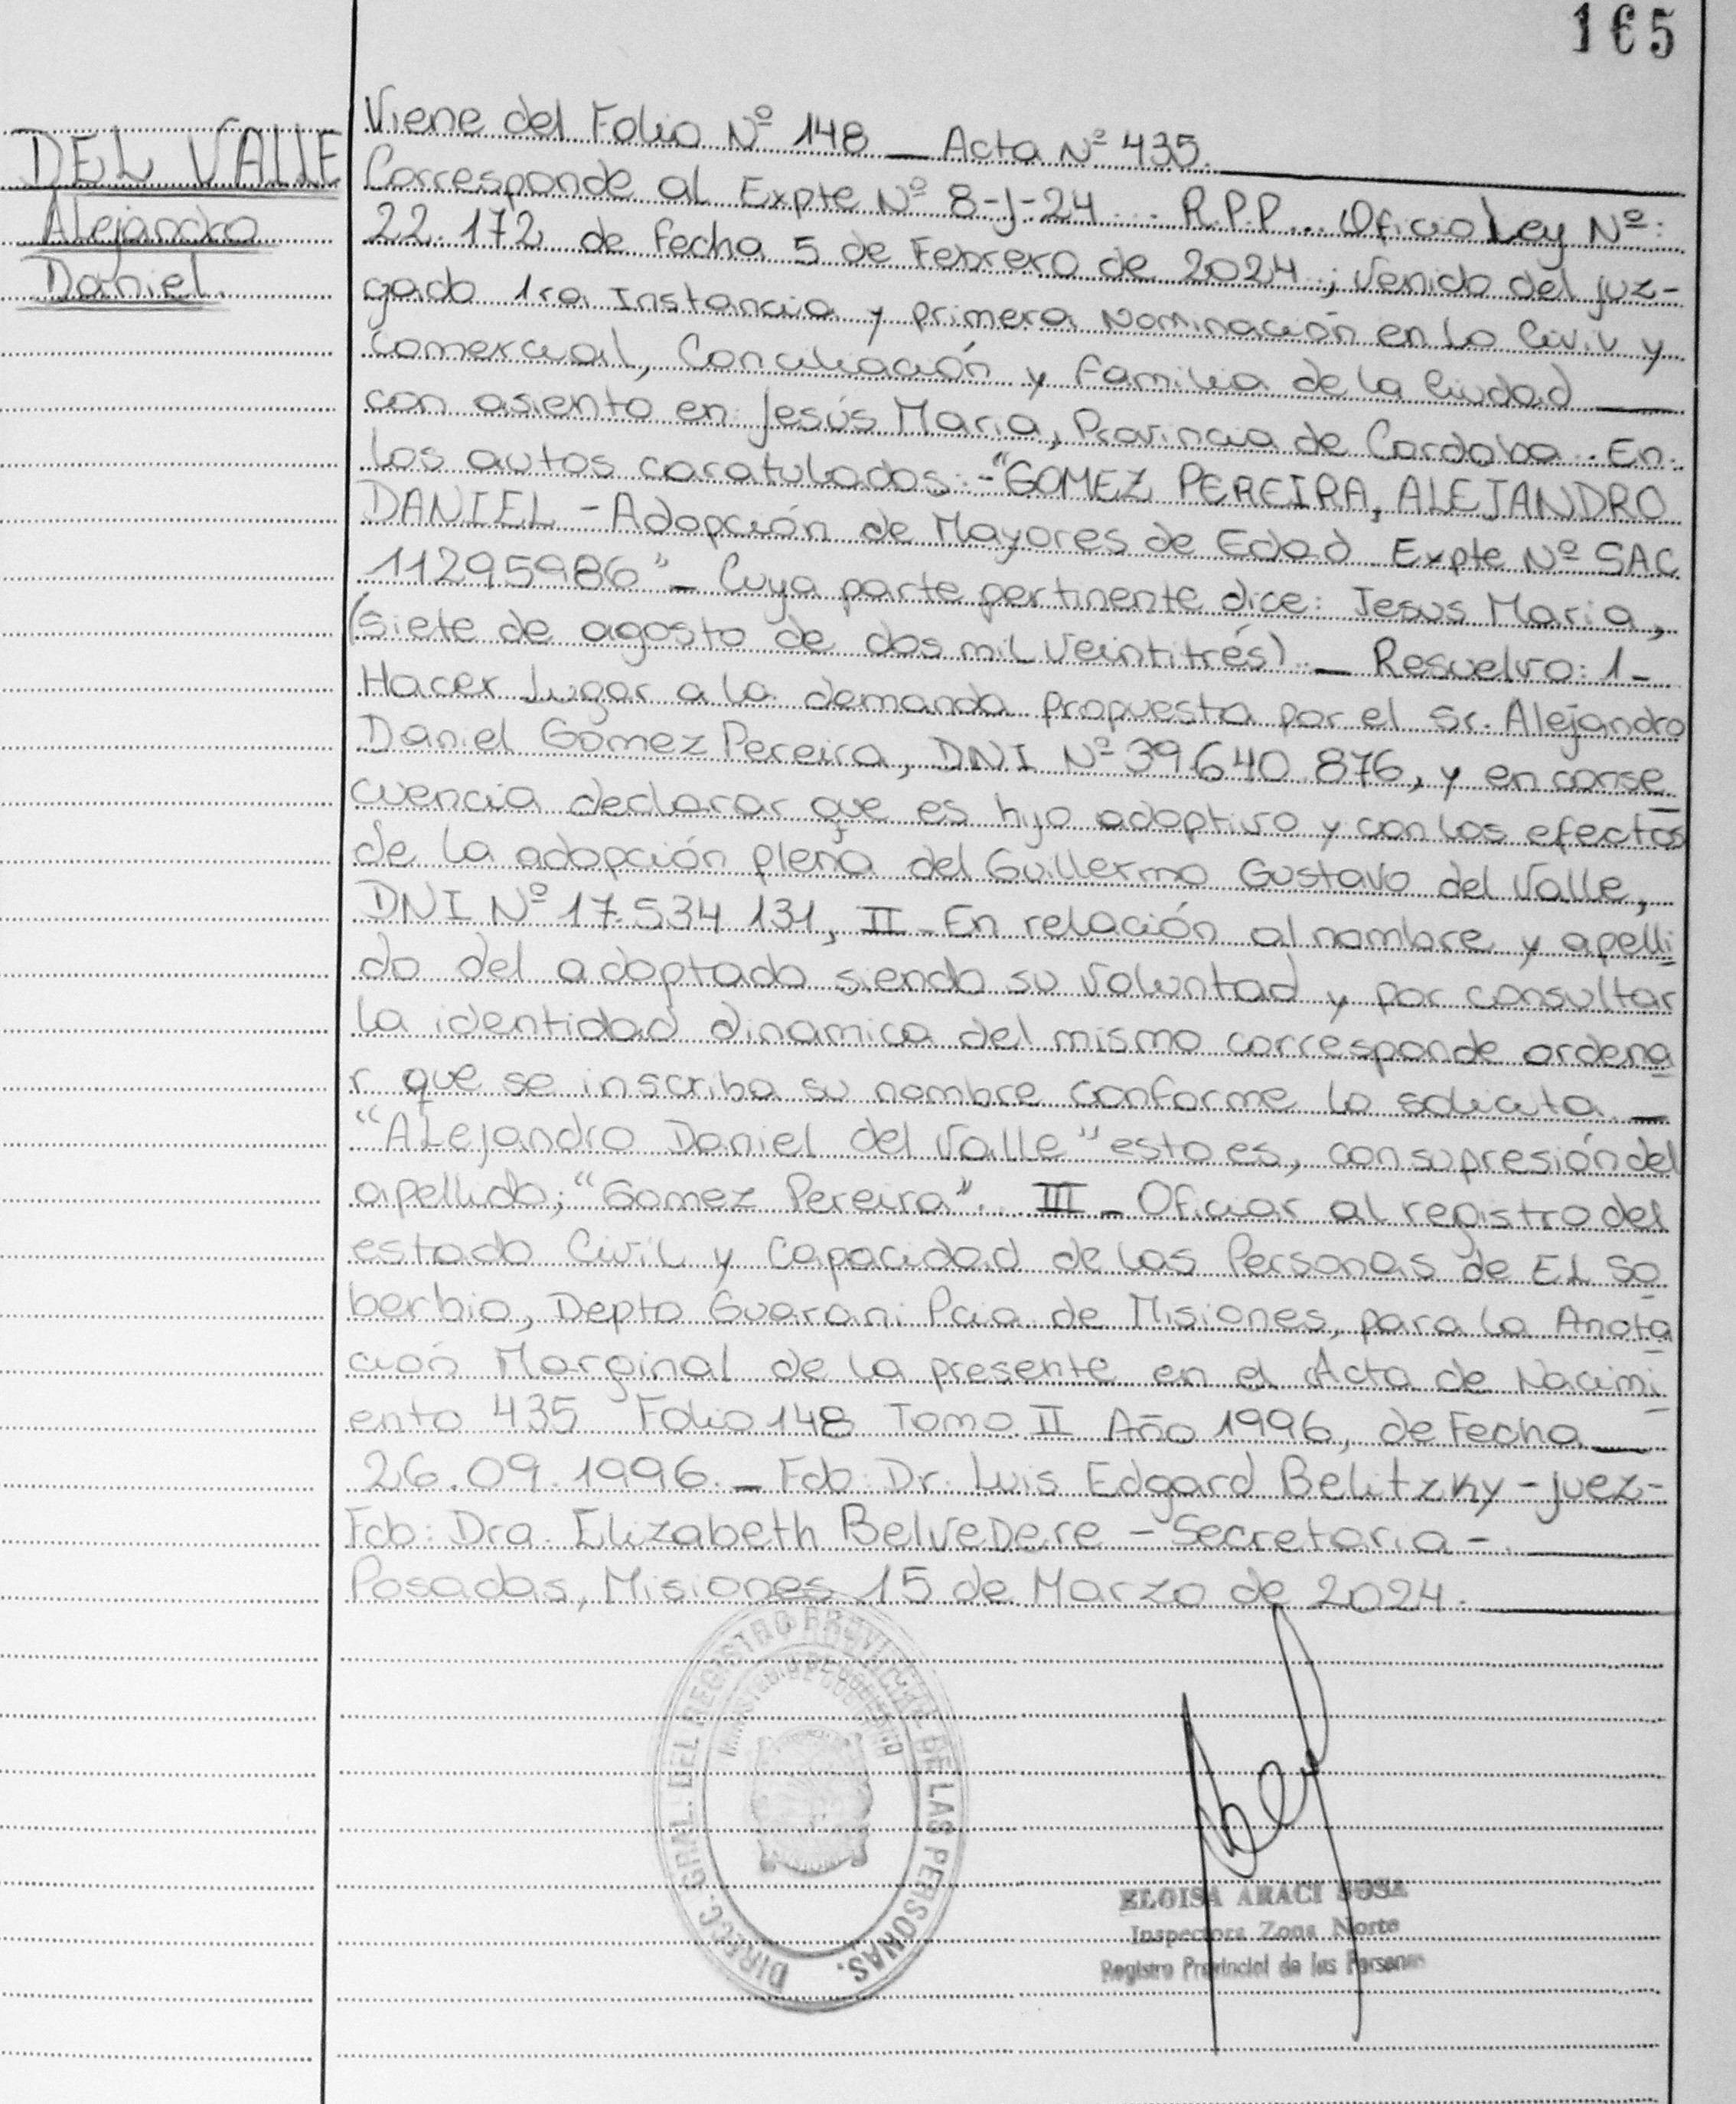 165
DEL VALLE
Alejandro
Daniel.
Viene del Folio Nº 148 _ Acta Nº 435.
Corresponde al Expte Nº 8-J-24... R.P.P... Oficio Ley Nº:
22.172 de fecha 5 de Febrero de 2024.; Venido del juz-
gado 1ra Instancia y primera Nominación en Lo Civil y
Comercial, Conciliación y Familia de la Ciudad
con asiento en Jesús Maria, Provincia de Cordoba.. En.
los autos caratulados:-"GOMEZ PEREIRA, ALEJANDRO
DANIEL - Adopción de Mayores de Edad Expte Nº SAC
11295986"_ Cuya parte pertinente dice: Jesus Maria,
(siete de agosto de dos mil veintitrés)._ Resuelvo: 1-
Hacer Lugar a la demanda propuesta por el Sr. Alejandro
Daniel Gomez Pereira, DNI Nº 39.640.876, y en conse
cuencia declarar que es hijo adoptivo y con los efectos
de la adopción plena del Guillermo Gustavo del Valle,
DNI Nº 17.534.131, II_ En relación al nombre y apelli
do del adoptado siendo su voluntad y por consultar
la identidad dinamica del mismo corresponde ordena
r que se inscriba su nombre conforme lo solicita _
"Alejandro Daniel del Valle" esto es, con supresión del
apellido; "Gomez Pereira"... III _ Oficiar al registro del
estado Civil y Capacidad de las Personas de EL So
berbio, Depto Guarani Pcia de Misiones, para la Anota
ción Marginal de la presente en el Acta de Nacimi
ento 435 Folio 148 Tomo II Año 1996, de Fecha
26.09.1996._ Fdo: Dr. Luis Edgard Belitzky - juez-
Fdo: Dra. Elizabeth BelveDere - Secretaria -.
Posadas, Misiones 15 de Marzo de 2024.
DIRECC. GRAL. DEL REGISTRO PROVINCIAL DE LAS PERSONAS.
MINISTERIO DE GOBIERNO
ELOISA ARACI SOSA
Inspectora Zona Norte
Registro Provincial de las Personas